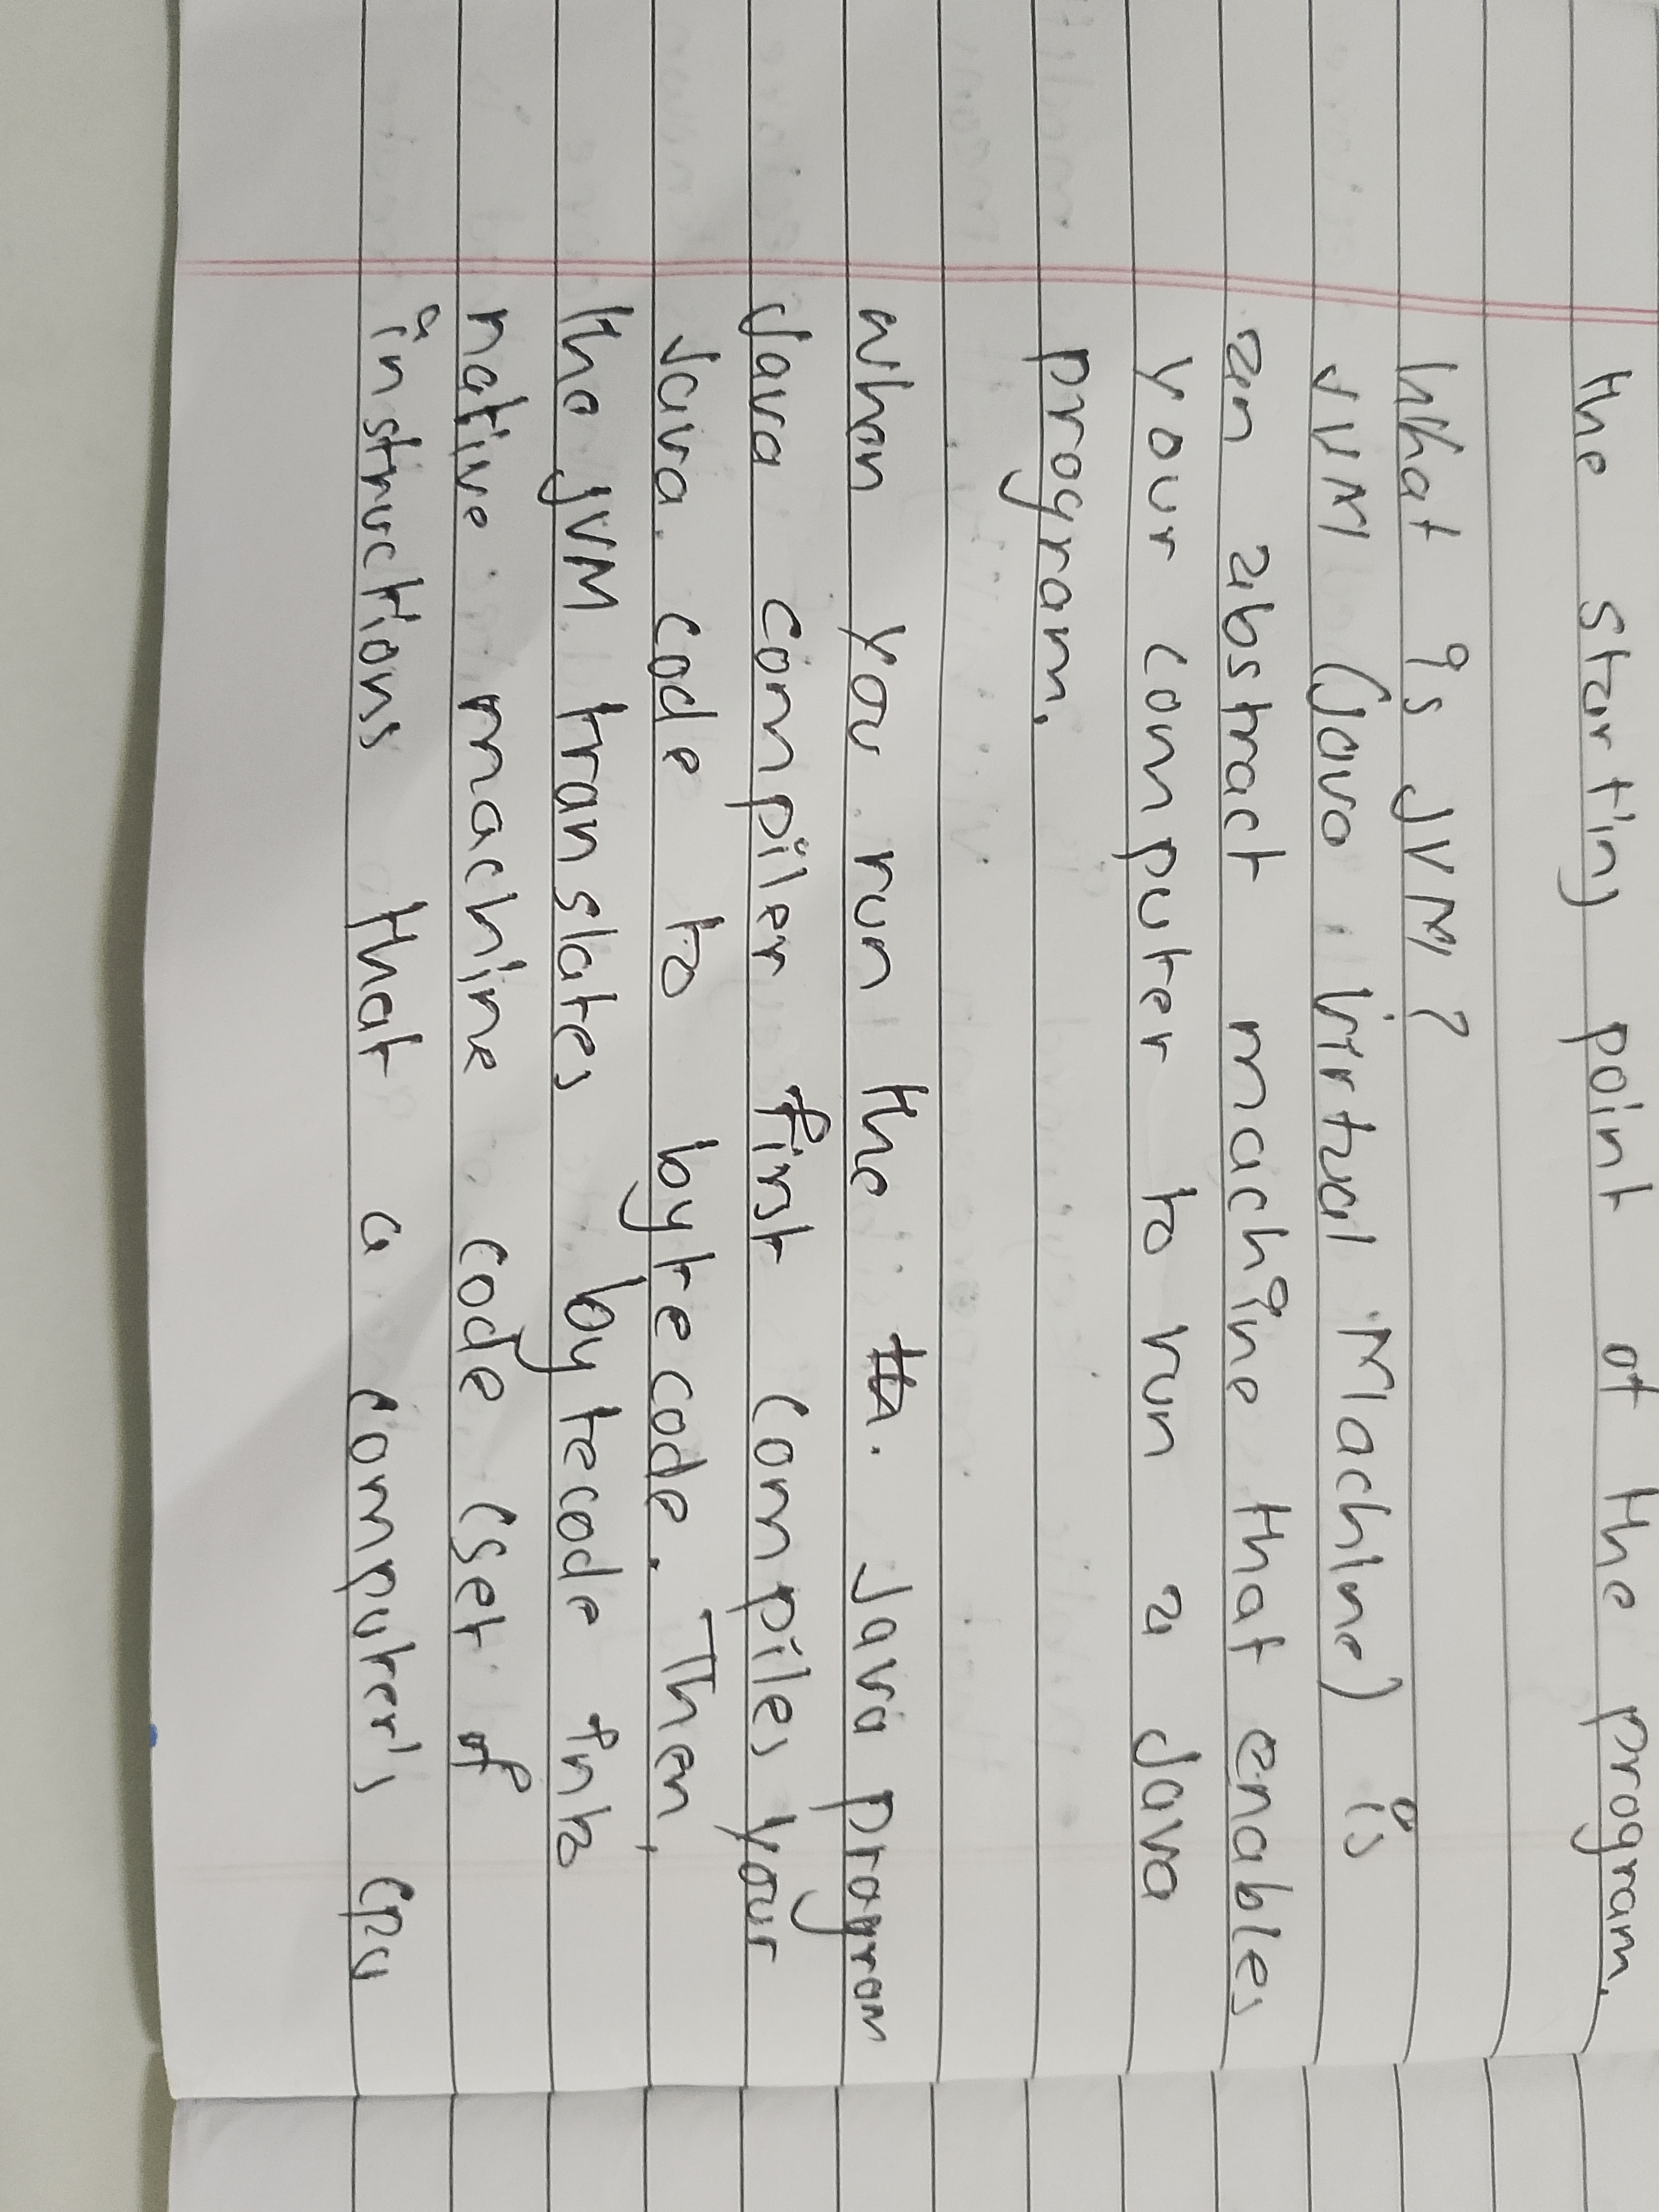 the starting point of the program.
What is JVM ?
JVM (Java Virtual Machine) is
an abstract machine that enables
your computer to run a Java
program.
When you run the Java program
Java compiler first compiles your
Java code to bytecode. Then,
the JVM translates bytecode into
native machine code (set of
instructions that a computer's CPU